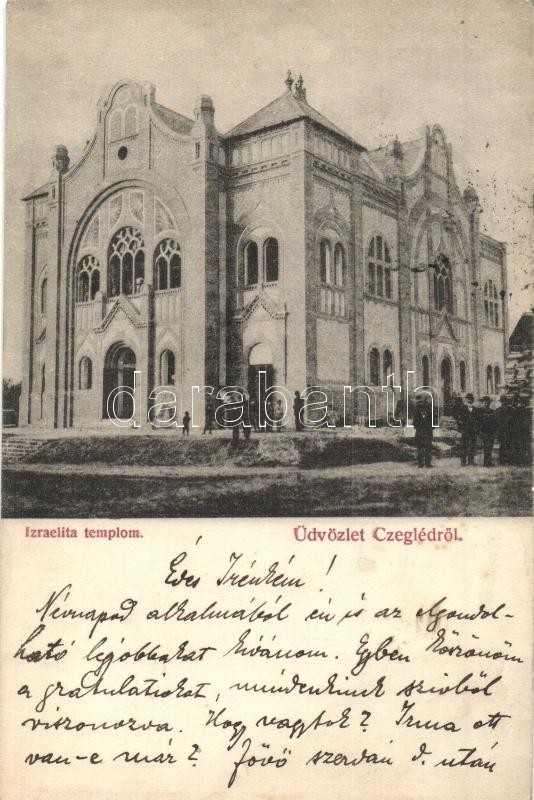 darabanth
Izraelita templom.
Üdvözlet Czeglédről.
Édes Irénkém!
Névnapod alkalmából én is az elgondol-
ható legjobbakat kívánom. Egyben köszönöm
a gratulatiokat, mindenkinek szívből
viszonozva. Hogy vagytok? Irma ott
van-e már? Jövő szerdán d. után